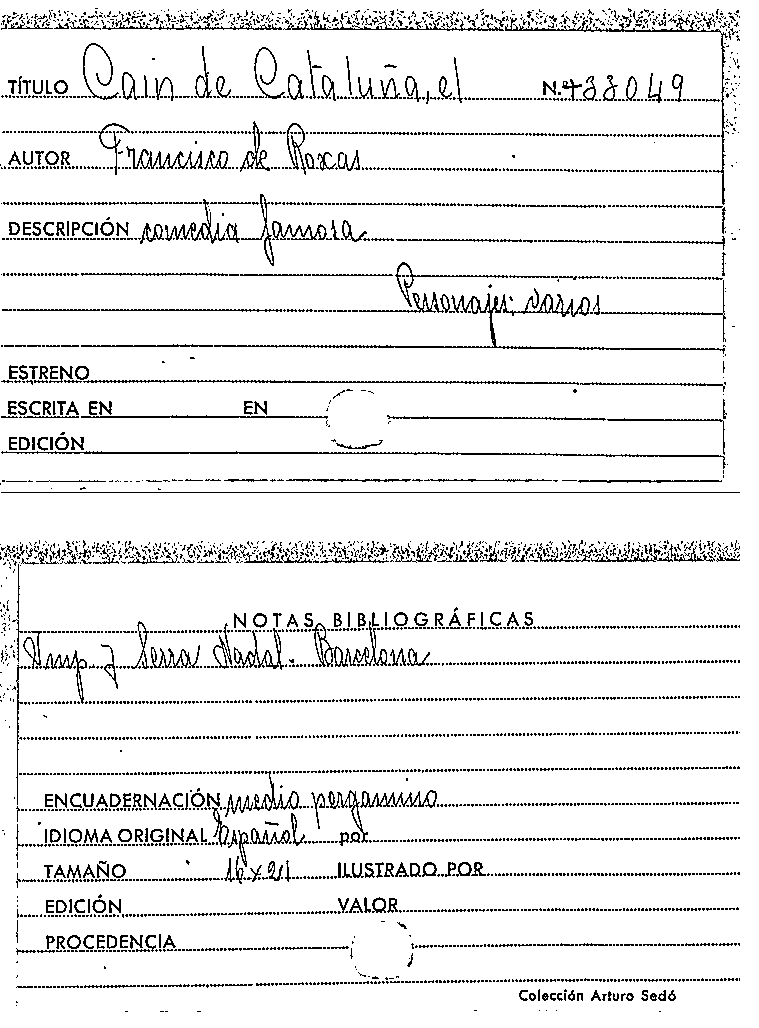 TÍTULO Cain de Cataluña, el N.º 33049
AUTOR Francisco de Roxas
DESCRIPCIÓN comedia famosa
Personajes: varios
ESTRENO
ESCRITA EN EN
EDICIÓN
NOTAS BIBLIOGRÁFICAS
Imp. J Serra Nadal. Barcelona
ENCUADERNACIÓN medio pergamino
IDIOMA ORIGINAL Español por
TAMAÑO 16 x 21 ILUSTRADO POR
EDICIÓN VALOR
PROCEDENCIA
Colección Arturo Sedó